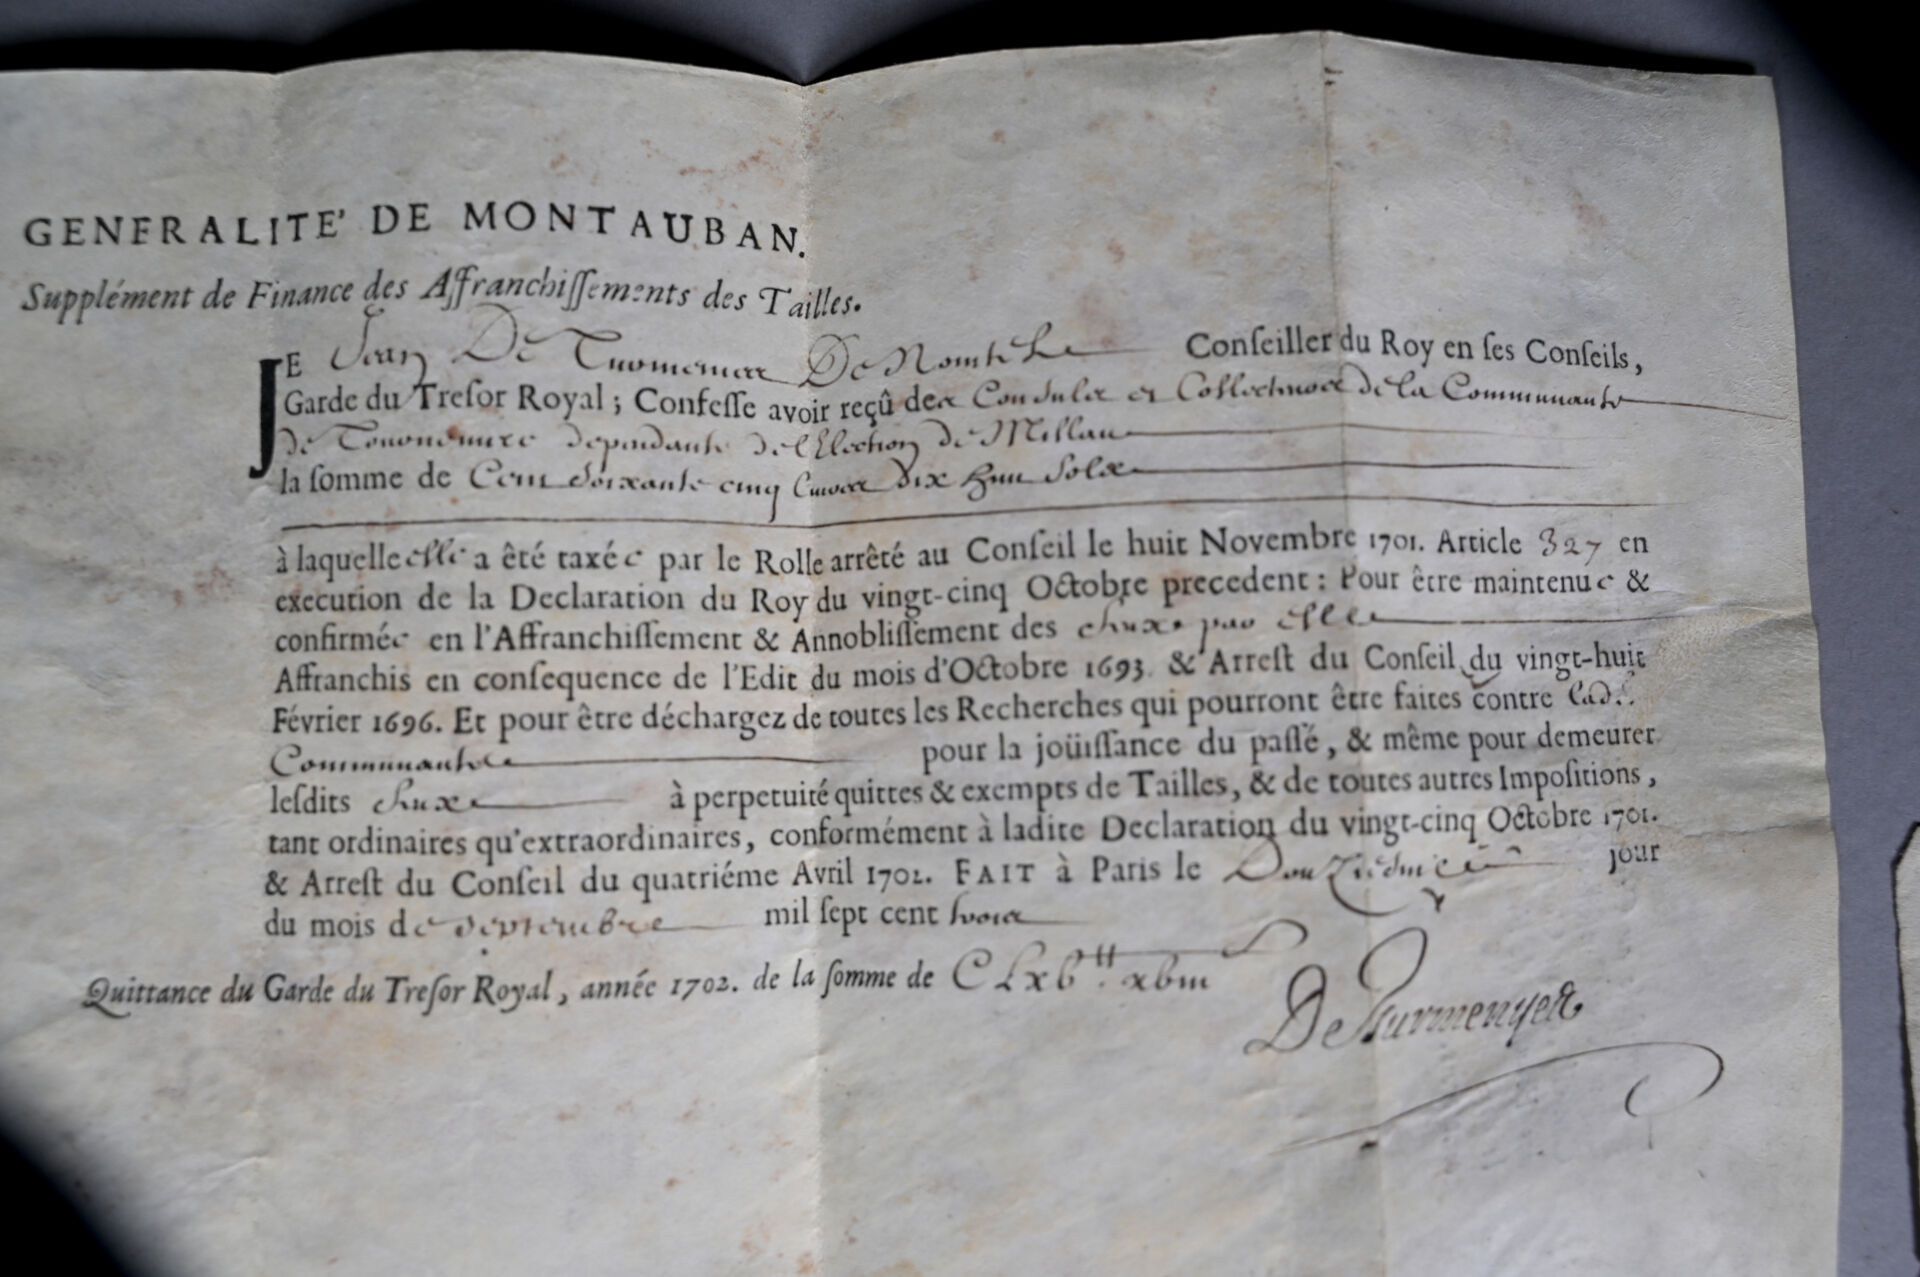 GENERALITE' DE MONTAUBAN.
Supplément de Finance des Affranchiſſements des Tailles.
JE Jean De Turmenies De Nointel Conſeiller du Roy en ſes Conſeils,
Garde du Treſor Royal ; Confeſſe avoir reçû des Consulz et Collecteurs de la Communauté
de dependante de l'Election de Millau
la ſomme de Cent soixante cinq livres dix huit solz
à laquelle elle a êté taxée par le Rolle arrêté au Conſeil le huit Novembre 1701. Article 327 en
execution de la Declaration du Roy du vingt-cinq Octobre precedent : Pour être maintenue &
confirmée en l'Affranchiſſement & Annobliſſement des par elle
Affranchis en conſequence de l'Edit du mois d'Octobre 1693. & Arreſt du Conſeil du vingt-huit
Février 1696. Et pour être déchargez de toutes les Recherches qui pourront être faites contre
Communauté pour la joüiſſance du paſſé, & même pour demeurer
leſdits à perpetuité quittes & exempts de Tailles, & de toutes autres Impoſitions,
tant ordinaires qu'extraordinaires, conformément à ladite Declaration du vingt-cinq Octobre 1701.
& Arreſt du Conſeil du quatriéme Avril 1702. FAIT à Paris le Douziesme jour
du mois de septembre mil ſept cent trois
Quittance du Garde du Treſor Royal, année 1702. de la ſomme de CLxb^tt. xbiii^s
De Turmenyes